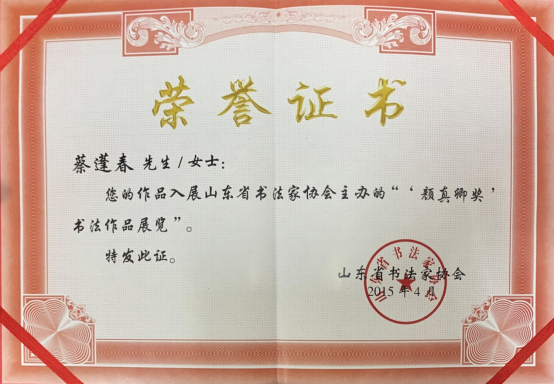 荣誉证书
蔡蓬春 先生/女士：
您的作品入展山东省书法家协会主办的“‘颜真卿奖’
书法作品展览”。
特发此证。
山东省书法家协会
2015年4月
山东省书法家协会